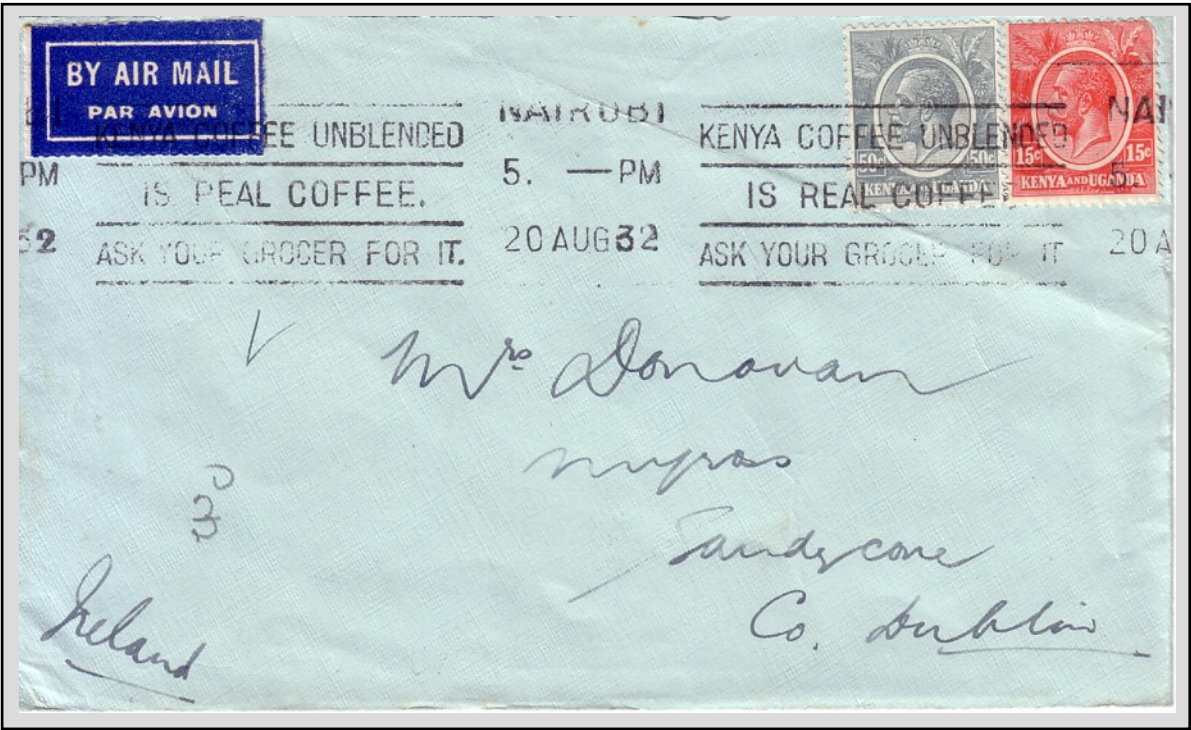 BY AIR MAIL
PAR AVION
KENYA COFFEE UNBLENDED
IS REAL COFFEE.
ASK YOUR GROCER FOR IT.
PM
32
NAIROBI
5. — PM
20 AUG 32
KENYA COFFEE UNBLENDED
IS REAL COFFEE.
ASK YOUR GROCER FOR IT
50c 50c
KENYA AND UGANDA
15c 15c
KENYA AND UGANDA
NAI
5.
20 A
Mrs Donovan
Sandycove
Co. Dublin
Ireland